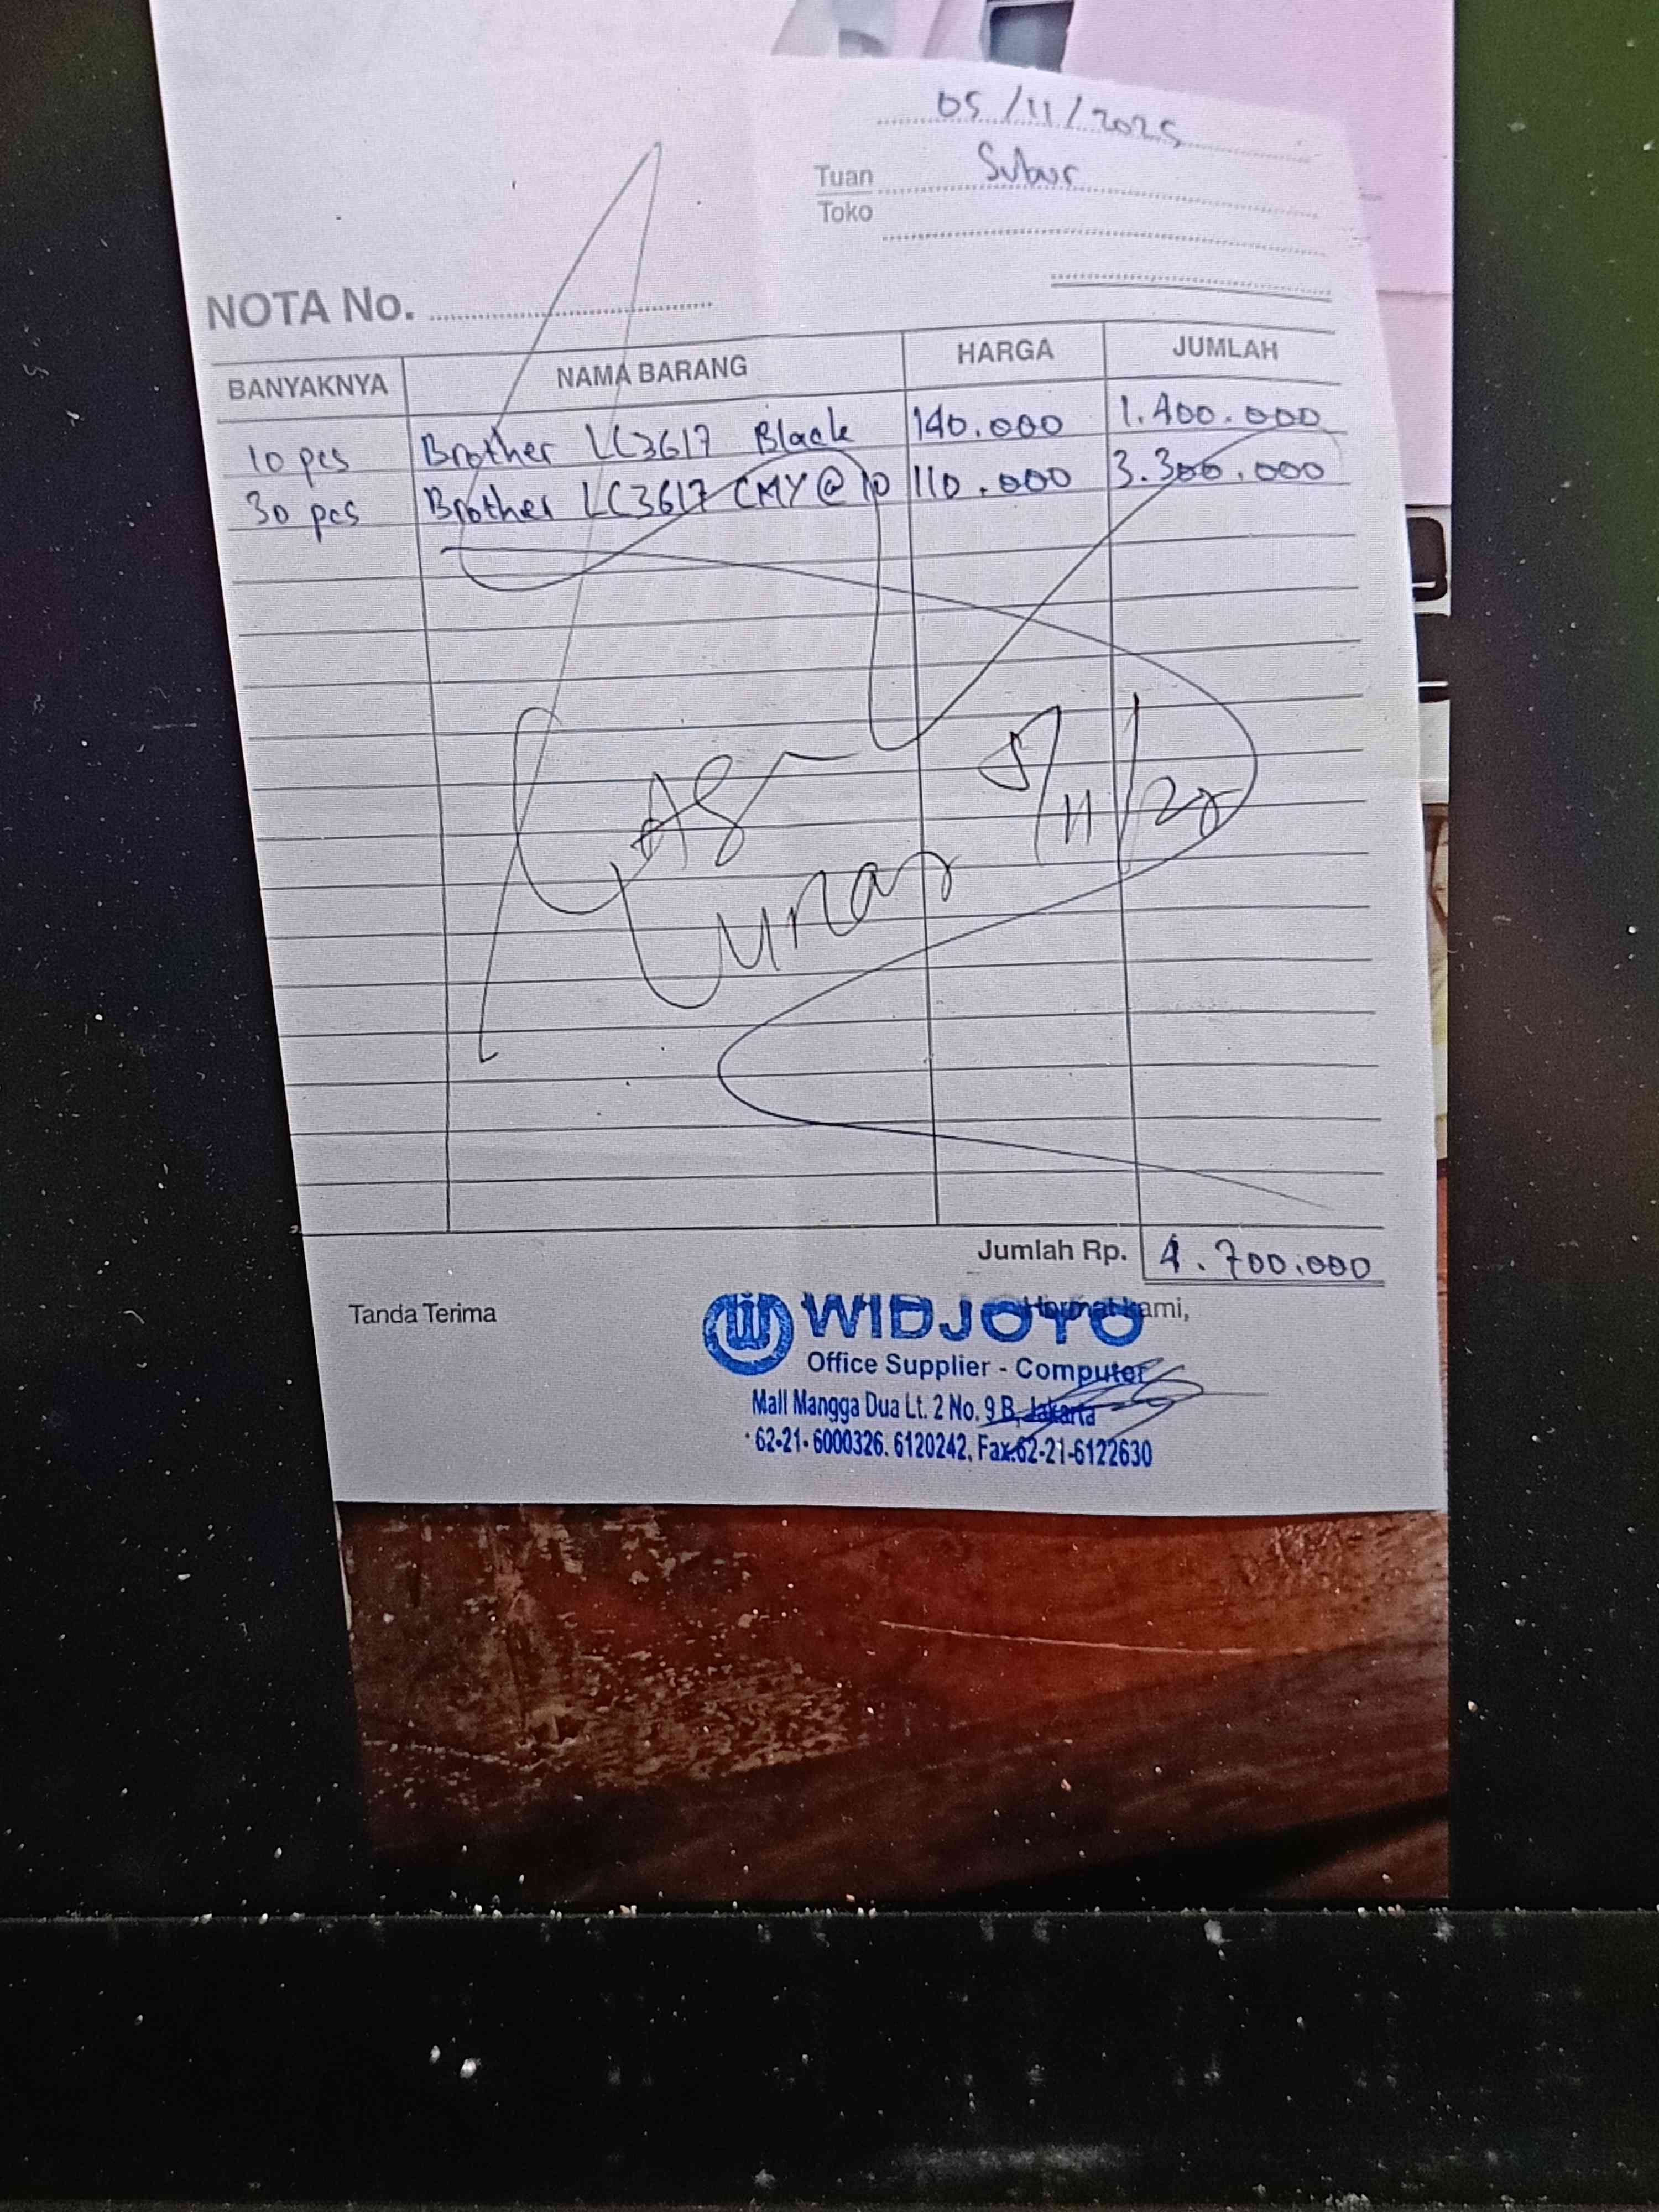 05/11/2025
Tuan Subur
Toko
NOTA No.
BANYAKNYA NAMA BARANG HARGA JUMLAH
10 pcs Brother LC3617 Black 140.000 1.400.000
30 pcs Brother LC3617 CMY @ 10 110.000 3.300.000
5/11/25
Lunas
Jumlah Rp. 4.700.000
Tanda Terima Hormat kami,
WIDJOYO
Office Supplier - Computer
Mall Mangga Dua Lt. 2 No. 9 B, Jakarta
62-21- 6000326. 6120242, Fax.62-21-6122630